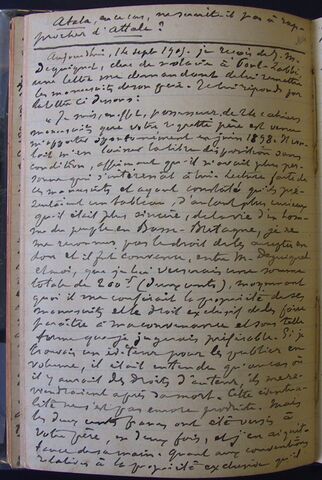 Atala, en ce cas, ne serait-il pas à rap-
procher d'Attale ?
Aujourd'hui, 14 sept. 1905, je reçois de J. M.
Déguignet, clerc de notaire à Pont-Labbé,
une lettre me demandant de lui remettre
les manuscrits de son père. Je lui réponds par
la lettre ci-dessous :
"Je suis, en effet, possesseur de 24 cahiers
manuscrits que votre regretté père est venu
m'apporter spontanément en juin 1898. Il vou-
lait m'en laisser la libre disposition sans
condition, affirmant qu'il n'avait plus per-
sonne qui s'intéressât à lui. Lecture faite de
ces manuscrits et ayant constaté qu'ils pré-
sentaient un tableau, d'autant plus curieux
qu'il était plus sincère, de la vie d'un hom-
me du peuple en Basse-Bretagne, je ne
me reconnus pas le droit de les accepter en
don et il fut convenu, entre M. Déguignet
et moi, que je lui verserais une somme
totale de 200 f (deux cents), moyennant
quoi il me conférait la propriété de ses
manuscrits et le droit exclusif de les faire
paraître à ma convenance et sous telle
forme que je jugerais préférable. Si je
trouvais un éditeur pour les publier en
volume, il était entendu qu'au cas où
il y aurait des droits d'auteur, ils me re-
viendraient après sa mort. Cette éventua-
lité ne s'est pas encore produite. Mais
les deux cents francs ont été versés à
votre père, en deux fois, et j'en ai quit-
tance de sa main. Quant aux conventions
relatives à la propriété exclusive qu'il